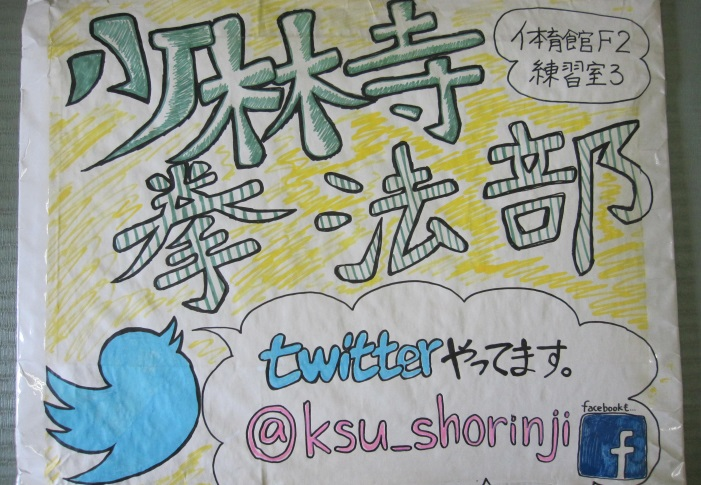 少林寺
体育館F2
練習室3
拳法部
twitterやってます。
@ksu_shorinji
facebookも...
f